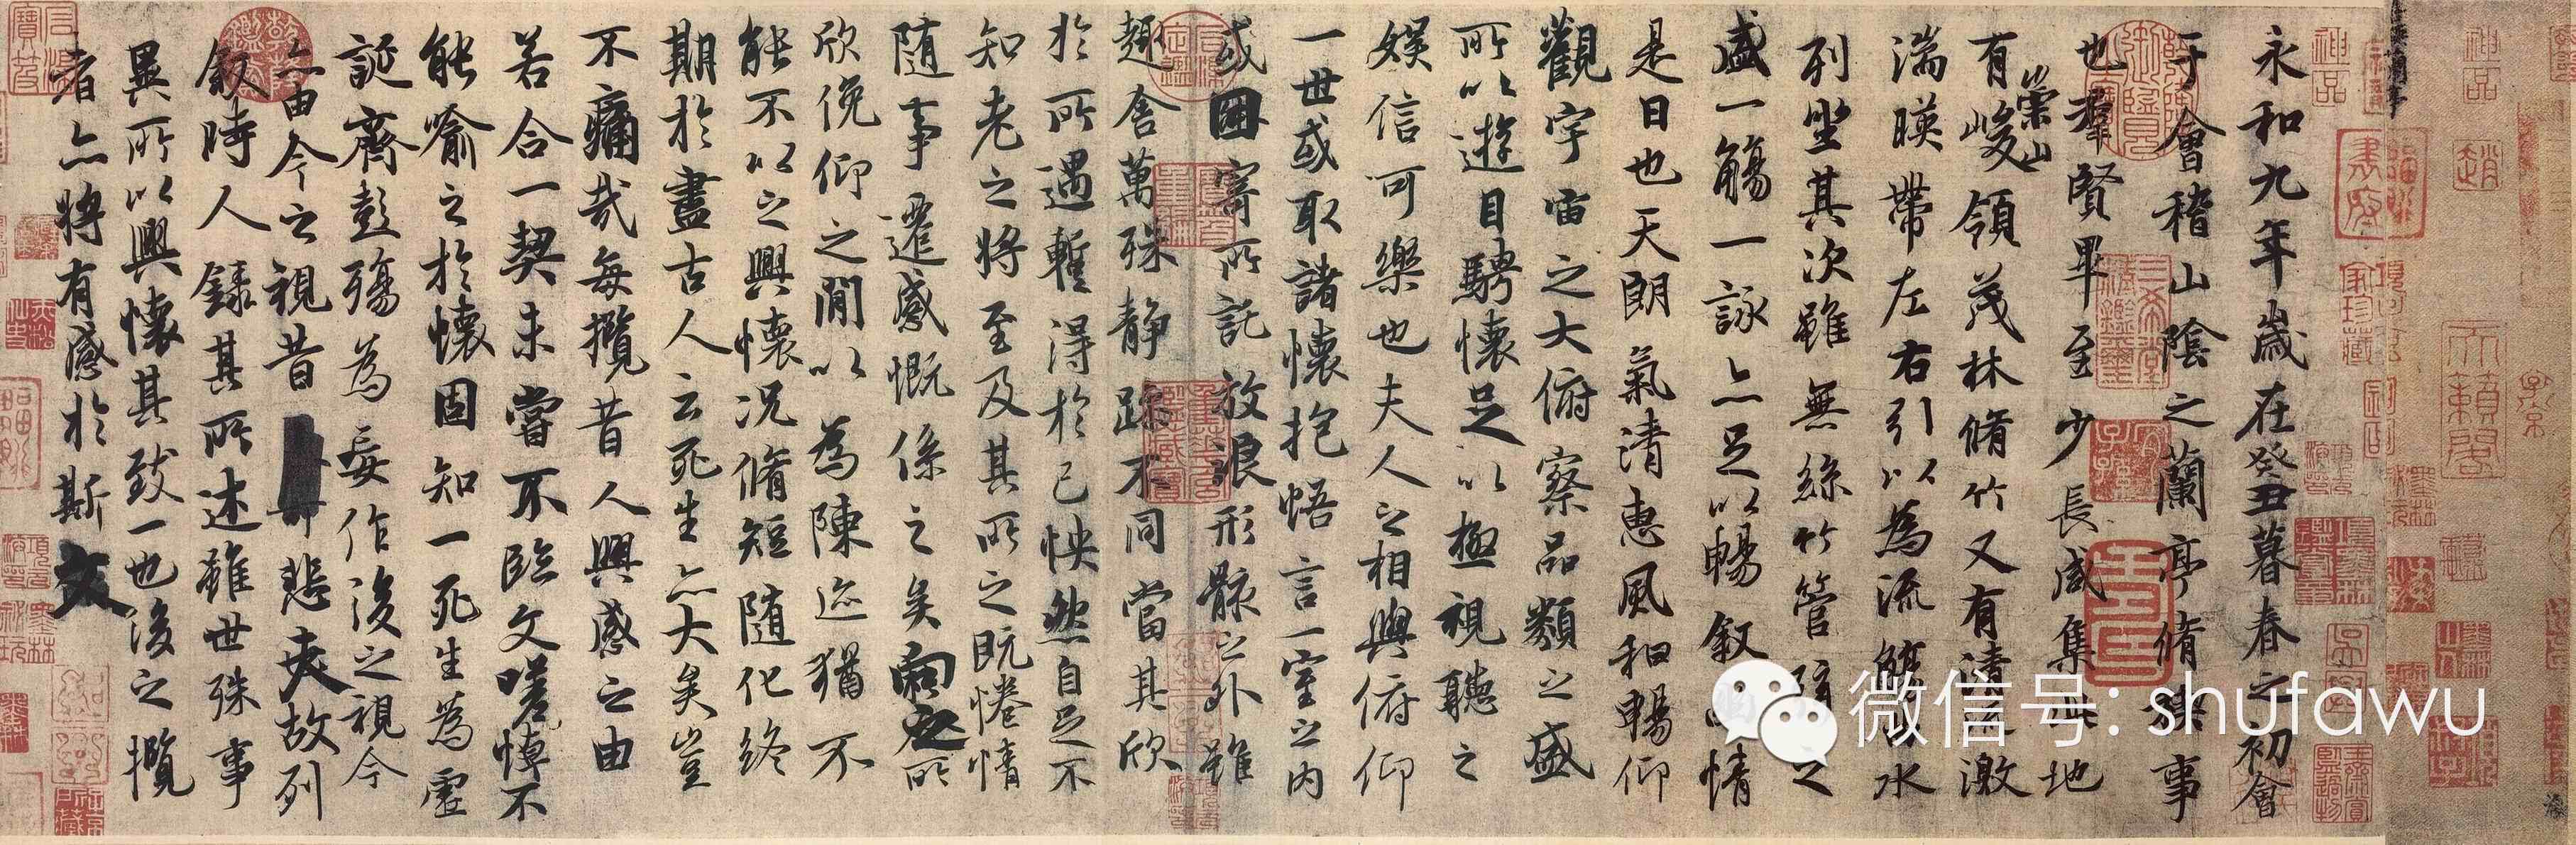 永和九年歲在癸丑暮春之初會
于會稽山陰之蘭亭脩禊事
也群賢畢至少長咸集此地
有崇山峻領茂林脩竹又有清流激
湍暎帶左右引以為流觴曲水
列坐其次雖無絲竹管弦之
盛一觴一詠亦足以暢叙幽情
是日也天朗氣清惠風和暢仰
觀宇宙之大俯察品類之盛
所以遊目騁懷足以極視聽之
娛信可樂也夫人之相與俯仰
一世或取諸懷抱悟言一室之內
或因寄所託放浪形骸之外雖
趣舍萬殊靜躁不同當其欣
於所遇暫得於己怏然自足不
知老之將至及其所之既惓情
隨事遷感慨係之矣向之所
欣俛仰之閒以為陳迹猶不
能不以之興懷況脩短隨化終
期於盡古人云死生亦大矣豈
不痛哉每攬昔人興感之由
若合一契未嘗不臨文嗟悼不
能喻之於懷固知一死生為虛
誕齊彭殤為妄作後之視今
亦由今之視昔悲夫故列
叙時人錄其所述雖世殊事
異所以興懷其致一也後之攬
者亦將有感於斯文
神品
三希堂精鑑璽
宜子孫
天籟閣
微信号: shufawu